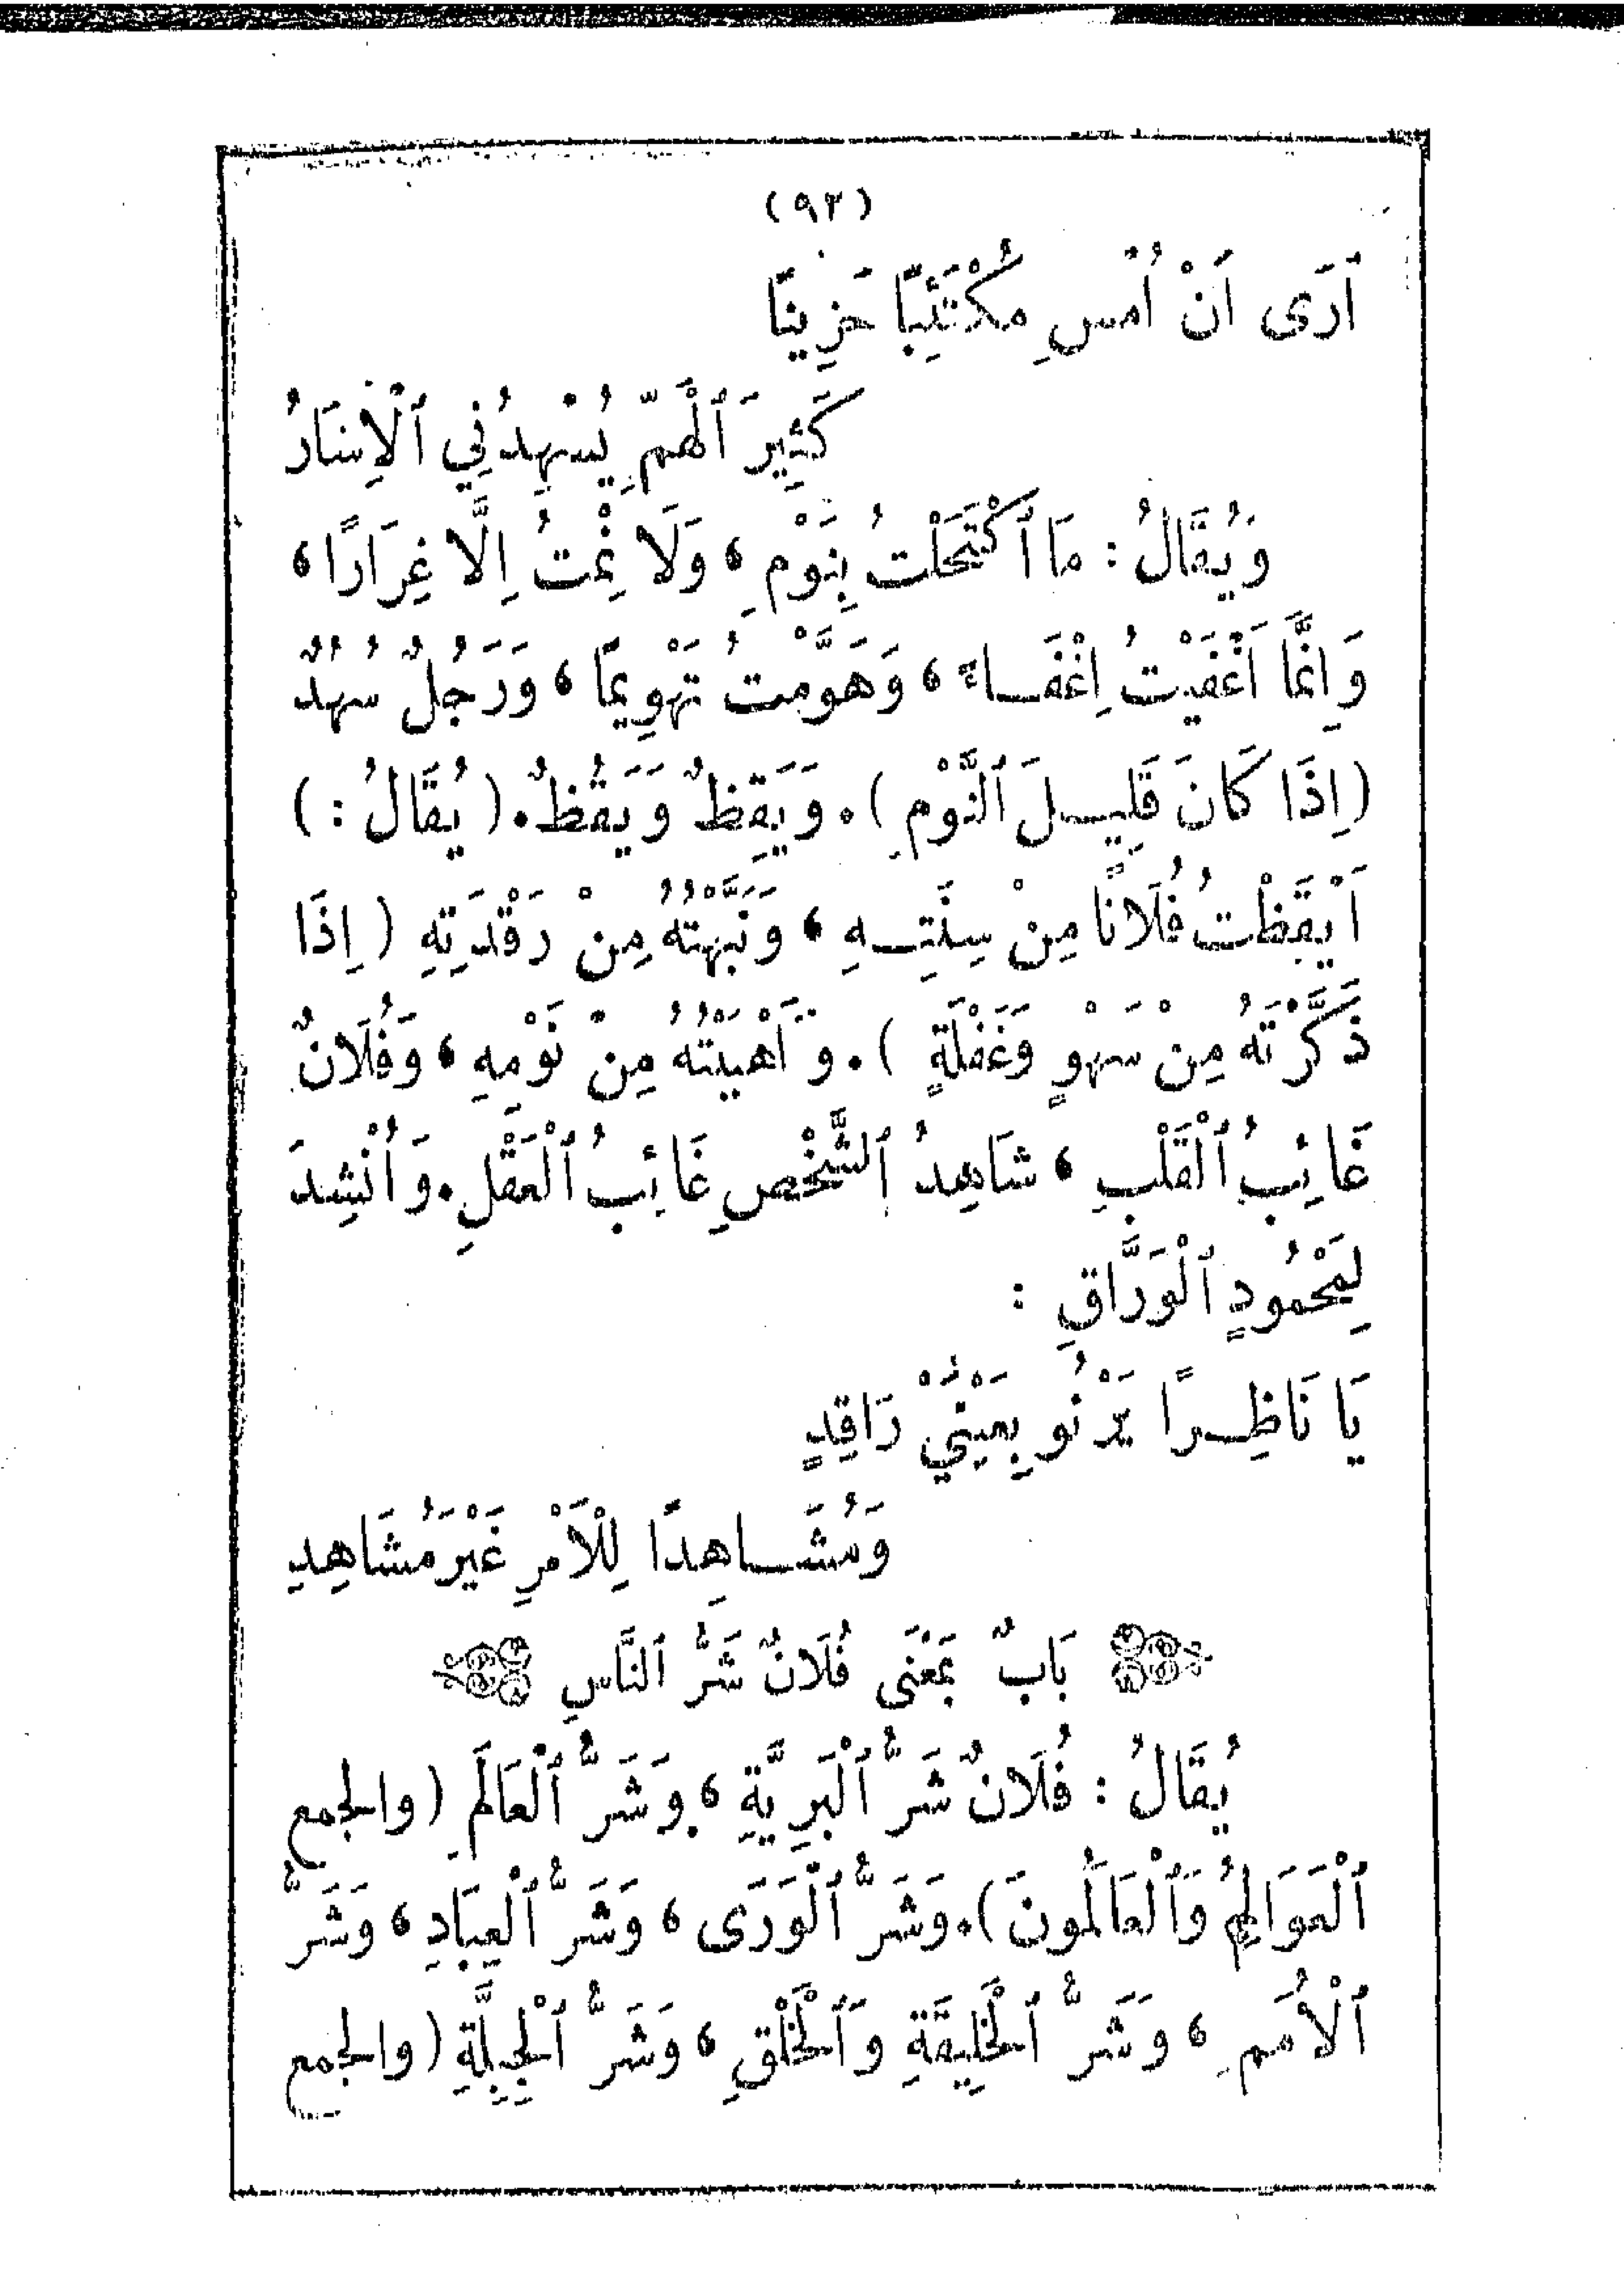 (٩٣)
أَرَى أَنْ أُمْسِ مُكْتَئِبًا حَزِينًا
كَثِيرَ ٱلْهَمِّ يُسْهِدُنِي ٱلْإِسَارُ
وَيُقَالُ : مَا ٱكْتَحَلْتُ بِنَوْمٍ ، وَلَا نِمْتُ إِلَّا غِرَارًا ،
وَإِنَّمَا أَغْفَيْتُ إِغْفَاءً ، وَهَوَّمْتُ تَهْوِيمًا ، وَرَجُلٌ سُهُدٌ
(إِذَا كَانَ قَلِيلَ ٱلنَّوْمِ) . وَيَقِظٌ وَيَقُظٌ . (يُقَالُ :)
أَيْقَظْتُ فُلَانًا مِنْ سِنَتِهِ ، وَنَبَّهْتُهُ مِنْ رَقْدَتِهِ (إِذَا
ذَكَّرْتَهُ مِنْ سَهْوٍ وَغَفْلَةٍ) . وَأَهْبَبْتُهُ مِنْ نَوْمِهِ ، وَفُلَانٌ
غَائِبُ ٱلْقَلْبِ ، شَاهِدُ ٱلشَّخْصِ غَائِبُ ٱلْعَقْلِ . وَأُنْشِدَ
لِمَحْمُودٍ ٱلْوَرَّاقِ :
يَا نَاظِرًا يَرْنُو بِعَيْنَيْ رَاقِدٍ
وَمُشَاهِدًا لِلْأَمْرِ غَيْرَ مُشَاهِدِ
بَابٌ بِمَعْنَى فُلَانٌ شَرُّ ٱلنَّاسِ
يُقَالُ : فُلَانٌ شَرُّ ٱلْبَرِيَّةِ ، وَشَرُّ ٱلْعَالَمِ (والجمع
ٱلْعَوَالِمُ وَٱلْعَالَمُونَ) . وَشَرُّ ٱلْوَرَى ، وَشَرُّ ٱلْعِبَادِ ، وَشَرُّ
ٱلْأُمَمِ ، وَشَرُّ ٱلْخَلِيقَةِ وَٱلْخَلْقِ ، وَشَرُّ ٱلْجِبِلَّةِ (والجمع